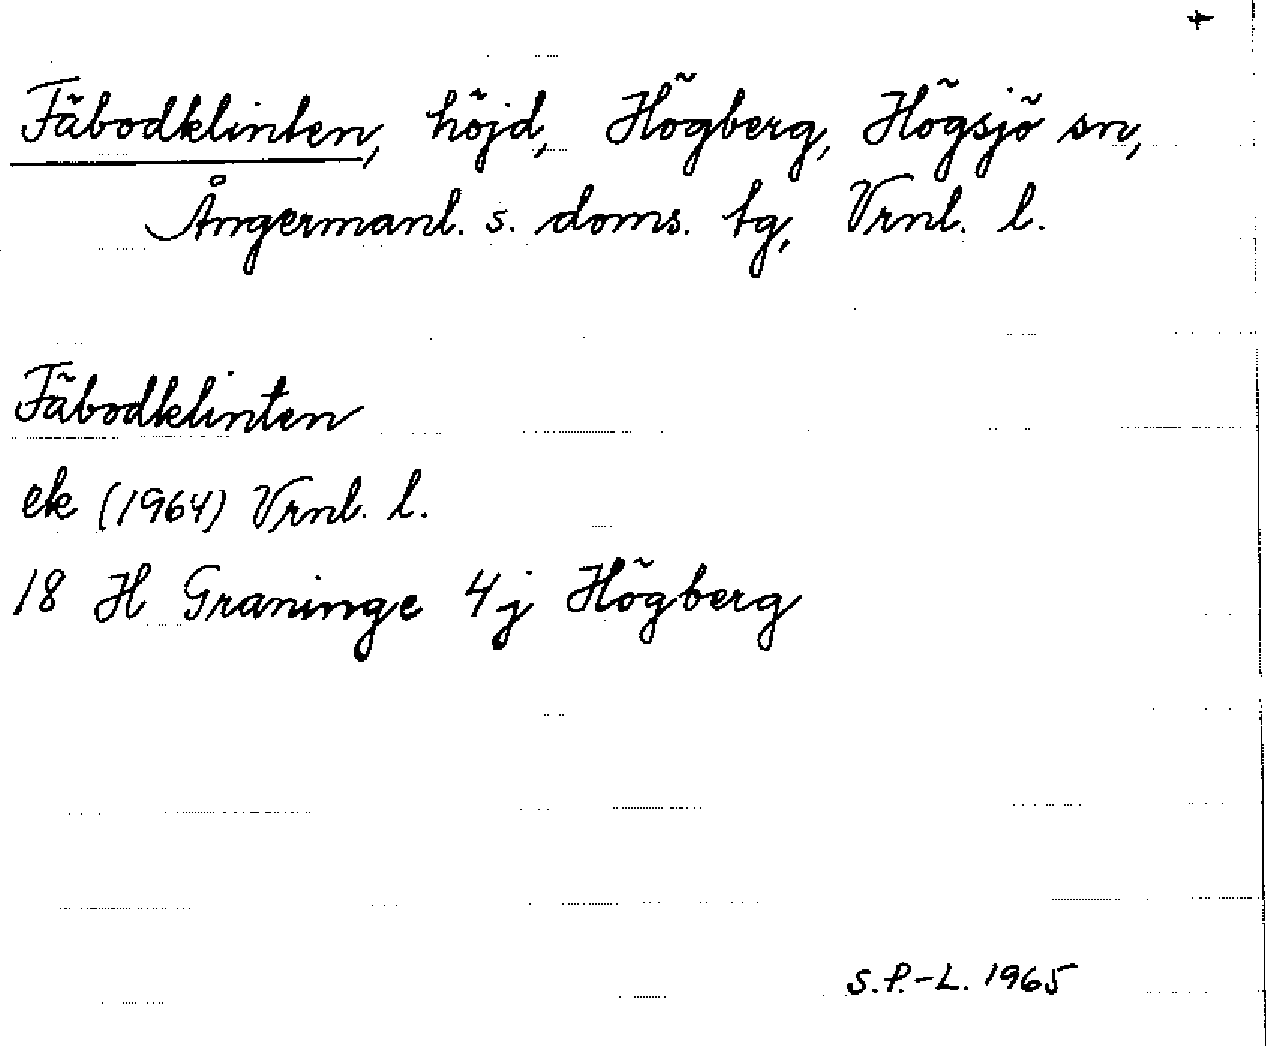 +
Fäbodklinten, höjd, Högberg, Högsjö sn,
Ångermanl. s. doms. tg, Vrnl. l.
Fäbodklinten
ek (1964) Vrnl. l.
18 H Graninge 4j Högberg
S.P.-L. 1965